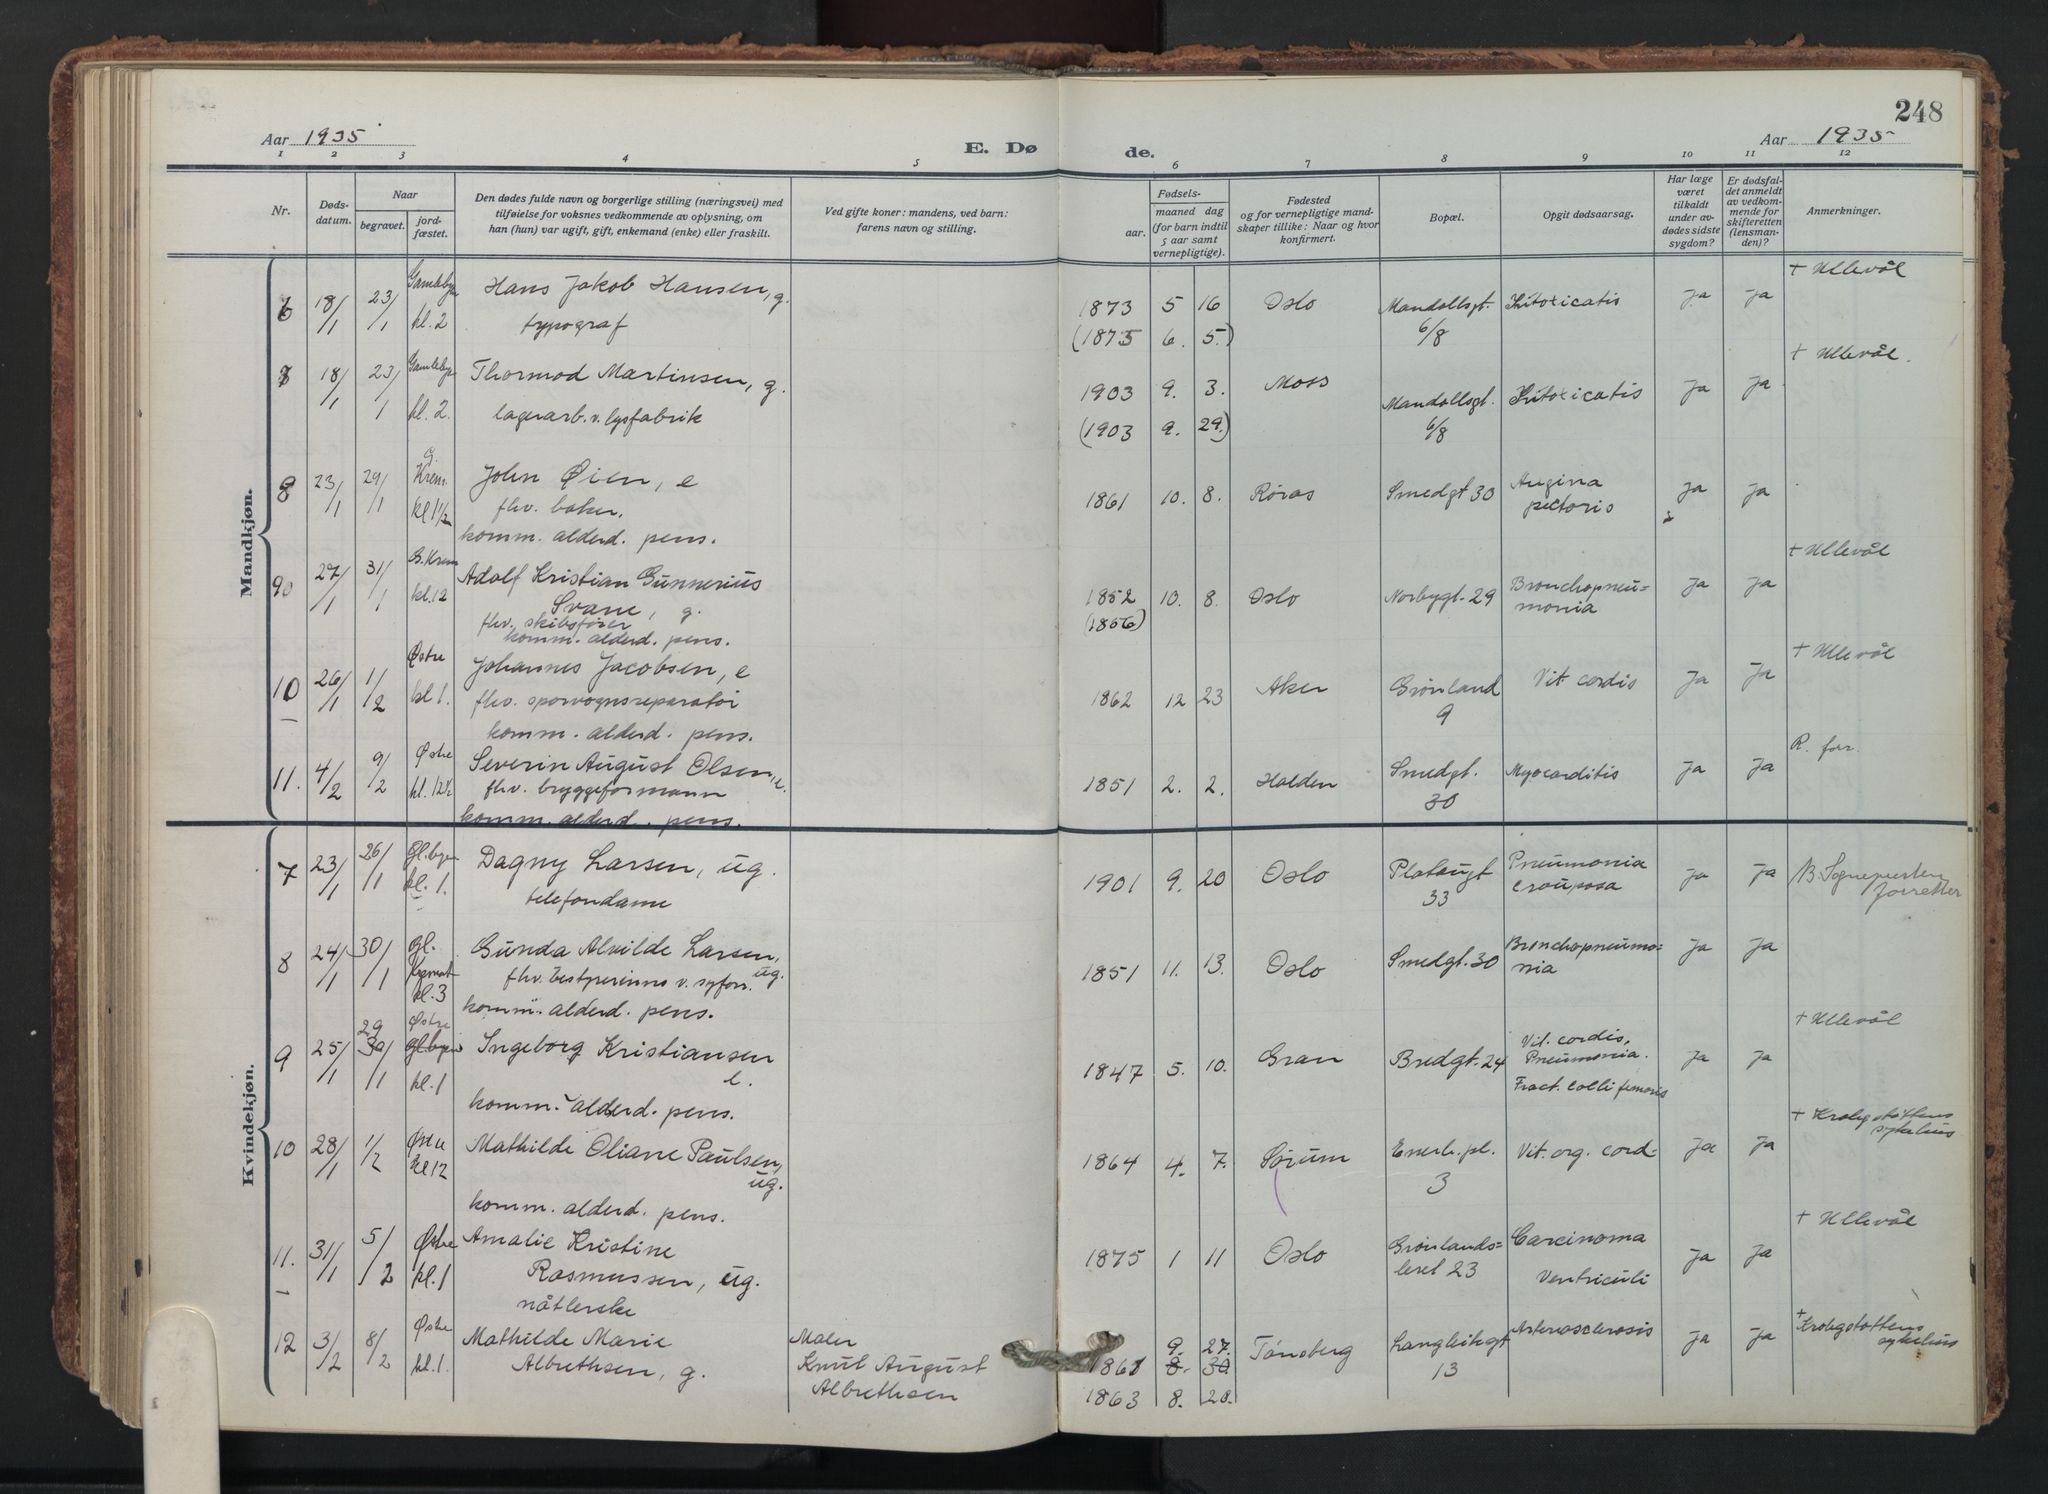 248
Aar 1935
E. Dø de.
Aar 1935
1 2 3 4 5 6 7 8 9 10 11 12
Nr.
Døds-
datum.
Naar
begravet.
jord-
fæstet.
Den dødes fulde navn og borgerlige stilling (næringsvei) med
tilføielse for voksnes vedkommende av oplysning, om
han (hun) var ugift, gift, enkemand (enke) eller fraskilt.
Ved gifte koner: mandens, ved barn:
farens navn og stilling.
Fødsels-
aar.
maaned dag
(for barn indtil
5 aar samt
vernepligtige).
Fødested
og for vernepligtige mand-
skaper tillike: Naar og hvor
konfirmert.
Bopæl.
Opgit dødsaarsag.
Har læge
været
tilkaldt
under av-
dødes sidste
sygdom?
Er dødsfal-
det anmeldt
av vedkom-
mende for
skifteretten
(lensman-
den)?
Anmerkninger.
Mandkjøn.
6 18/1 23/1 Gamlebyen kl. 2 Hans Jakob Hansen, g. 1873 5 16 Oslo Mandallsgt. 6/8 Intoxicatis Ja Ja + Ullevål
typograf (1875 6. 5.)
7 18/1 23/1 Gamlebyen kl. 2. Thormod Martinsen, g. 1903 9. 3. Moss Mandallsgt. 6/8 Intoxicatis Ja Ja + Ullevål.
lagerarb. v. lysfabrik (1903 9. 29.)
8 23/1 29/1 G. Krem. kl 1 1/2 John Øien, e 1861 10. 8. Røros Smedgt 30 Angina pectoris Ja Ja
fhv. baker.
komm. alderd. pens.
9 27/1 31/1 G. Krem kl. 12 Adolf Kristian Gunnerius 1852 10. 8. Oslo Norbygt. 29 Bronchopneu=
monia Ja Ja + Ullevål
Svane, g. (1856)
fhv. skibsfører
komm. alderd. pens.
10 26/1 1/2 Østre kl 1. Johannes Jacobsen, e 1862 12 23 Aker Grønland 9 Vit. cordis Ja Ja + Ullevål
fhv. sporvognsreparatør
komm. alderd. pens.
11. 4/2 9/2 Østre kl. 12 1/2 Severin August Olsen, e. 1851 2. 2. Halden Smedgt. 30 Myocarditis Ja Ja R. forr.
fhv. bryggeformann
komm. alderd. pens.
Kvindekjøn.
7 23/1 26/1 Gl. byen kl. 1. Dagny Larsen, ug. 1901 9. 20 Oslo Platougt 33 Pneumonia crouposa Ja Ja B. Sognepresten
forretter
telefondame
8 24/1 30/1 Gl. kl. 3 Gunda Alvilde Larsen, ug. 1851 11. 13. Oslo Smedgt. 30 Bronchopneumo=
nia Ja Ja
fhv. bestyrerinne v. syforr.
komm. alderd. pens.
9 25/1 29 30/1 Østre Gl. byen kl. 1 Ingeborg Kristiansen 1847 5. 10. Gran Bredgt. 24 Vit. cordis,
Pneumonia.
Fract. colli femoris Ja Ja + Ullevål
e.
komm. alderd. pens.
10 28/1 1/2 Østre kl 12 Mathilde Oliane Paulsen, ug. 1864 4. 7. Sørum Enerh. pl. 3 Vit. org. cord. Ja Ja + Krohgstøttens
sykehus
komm. alderd. pens.
11. 31/1 5/2 Østre kl. 1 Amalie Kristine 1875 1 11 Oslo Grønlands=
leret 23 Carcinoma
Ventriculi Ja Ja + Ullevål
Rasmussen, ug.
nåtlerske
12 3/2 8/2 Østre kl. 1. Mathilde Marie Maler 1861 9. 27. 8. 30 Tønsberg Langleikgt 13 Arteriosclerosis Ja Ja + Krohgstøttens
sykehus
Albrethsen, g. Knut August
Albrethsen 1863 8. 28.